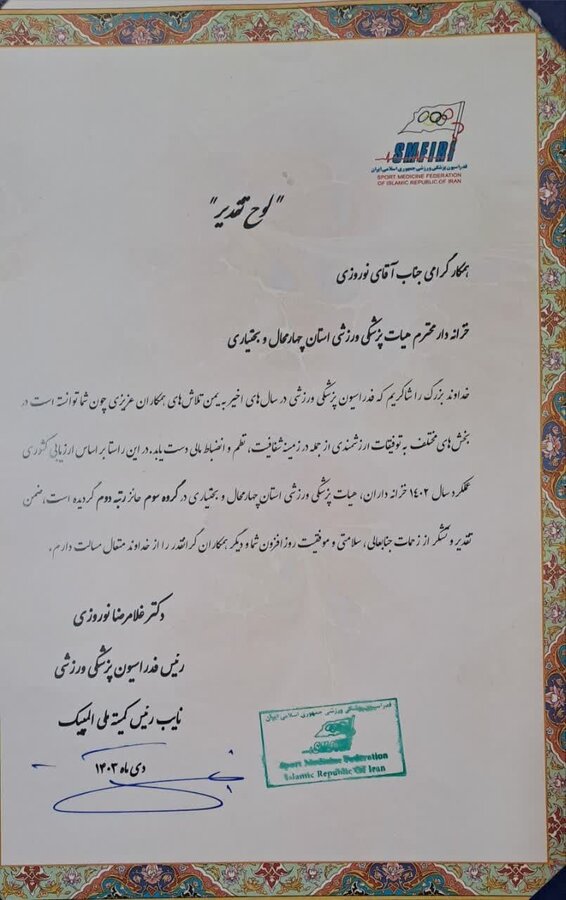 SMFIRI
فدراسیون پزشکی ورزشی جمهوری اسلامی ایران
SPORT MEDICINE FEDERATION
OF ISLAMIC REPUBLIC OF IRAN
"لوح تقدیر"
همکار گرامی جناب آقای نوروزی
خزانه دار محترم هیات پزشکی ورزشی استان چهارمحال و بختیاری
خداوند بزرگ را شاکریم که فدراسیون پزشکی ورزشی در سال های اخیر به یمن تلاش های همکاران عزیزی چون شما توانسته است در
بخش های مختلف به توفیقات ارزشمندی از جمله در زمینه شفافیت، نظم و انضباط مالی دست یابد. در این راستا بر اساس ارزیابی کشوری
عملکرد سال ۱۴۰۲ خزانه داران، هیات پزشکی ورزشی استان چهارمحال و بختیاری در گروه سوم حائز رتبه دوم گردیده است، ضمن
تقدیر و تشکر از زحمات جنابعالی، سلامتی و موفقیت روزافزون شما و دیگر همکاران گرانقدر را از خداوند متعال مسالت دارم.
دکتر غلامرضا نوروزی
رئیس فدراسیون پزشکی ورزشی
نایب رئیس کمیته ملی المپیک
دی ماه ۱۴۰۳
فدراسیون پزشکی ورزشی جمهوری اسلامی ایران
SMFIRI
Sport Medicine Federation
Islamic Republic Of Iran